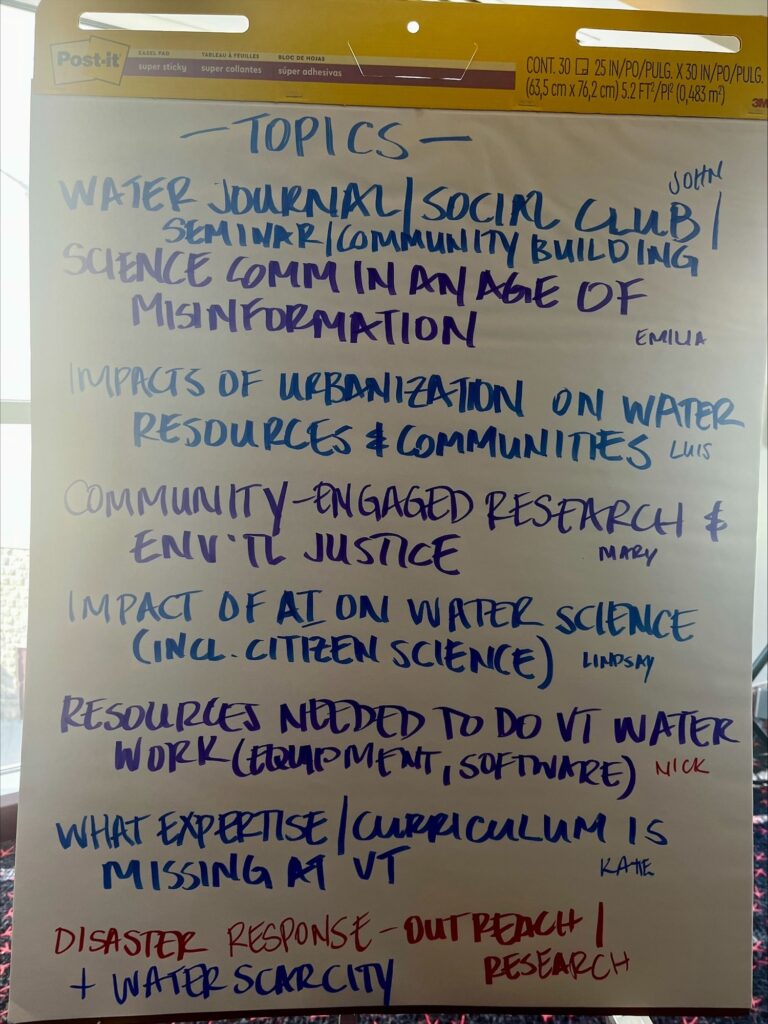 Post-it
EASEL PAD TABLEAU À FEUILLES BLOC DE HOJAS
super sticky super collantes súper adhesivas
CONT. 30 25 IN/PO/PULG. X 30 IN/PO/PULG.
(63,5 cm x 76,2 cm) 5.2 FT²/PI² (0,483 m²)
3M
— TOPICS —
JOHN
WATER JOURNAL/SOCIAL CLUB/
SEMINAR/COMMUNITY BUILDING
SCIENCE COMM IN AN AGE OF
MISINFORMATION
EMILIA
IMPACTS OF URBANIZATION ON WATER
RESOURCES & COMMUNITIES LUIS
COMMUNITY-ENGAGED RESEARCH &
ENV'TL JUSTICE MARY
IMPACT OF AI ON WATER SCIENCE
(INCL. CITIZEN SCIENCE) LINDSAY
RESOURCES NEEDED TO DO VT WATER
WORK (EQUIPMENT, SOFTWARE) NICK
WHAT EXPERTISE/CURRICULUM IS
MISSING AT VT KATIE
DISASTER RESPONSE - OUTREACH/
RESEARCH
+ WATER SCARCITY